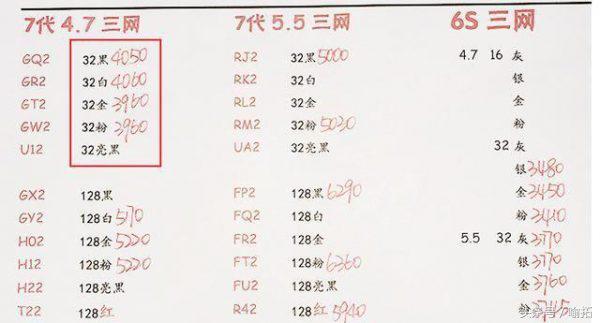 7代 4.7 三网 7代 5.5 三网 6S 三网
GQ2 32黑 4050 RJ2 32黑 5000 4.7 16 灰
GR2 32白 4060 RK2 32白 银
GT2 32金 3960 RL2 32金 金
GW2 32粉 3960 RM2 32粉 5030 粉
U12 32亮黑 UA2 32亮黑 32 灰
银 3480
GX2 128黑 FP2 128黑 6290 金 3450
GY2 128白 5170 FQ2 128白 粉 3410
H02 128金 5220 FR2 128金 5.5 32 灰 3770
H12 128粉 5220 FT2 128粉 6360 银 3770
H22 128亮黑 FU2 128亮黑 金 3760
T22 128红 R42 128红 5940 粉 3745
头条号/喻拓